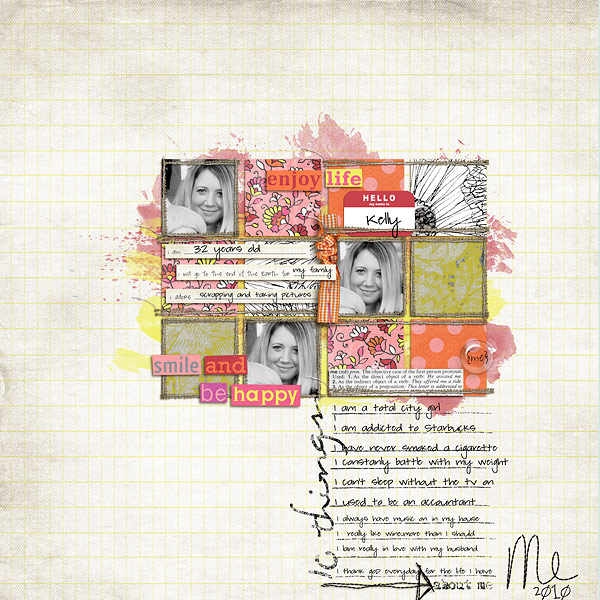 enjoy life
HELLO
my name is
Kelly
i am 32 years old
i will go to the end of the Earth for my family
i adore scrapping and taking pictures
smile and
be happy
me
me (mē) pron. The objective case of the first person pronoun.
Used: 1. As the direct object of a verb: He assisted me.
2. As the indirect object of a verb: They offered me a ride.
3. As the object of a preposition: This letter is addressed to
10 things
I am a total city girl
I am addicted to Starbucks
I have never smoked a cigarette
I constanly battle with my weight
I can't sleep without the tv on
I used to be an accountant
I always have music on in my house
I really like wine...more than I should
I am really in love with my husband
I thank god everyday for the life I have
about me
Me
2010